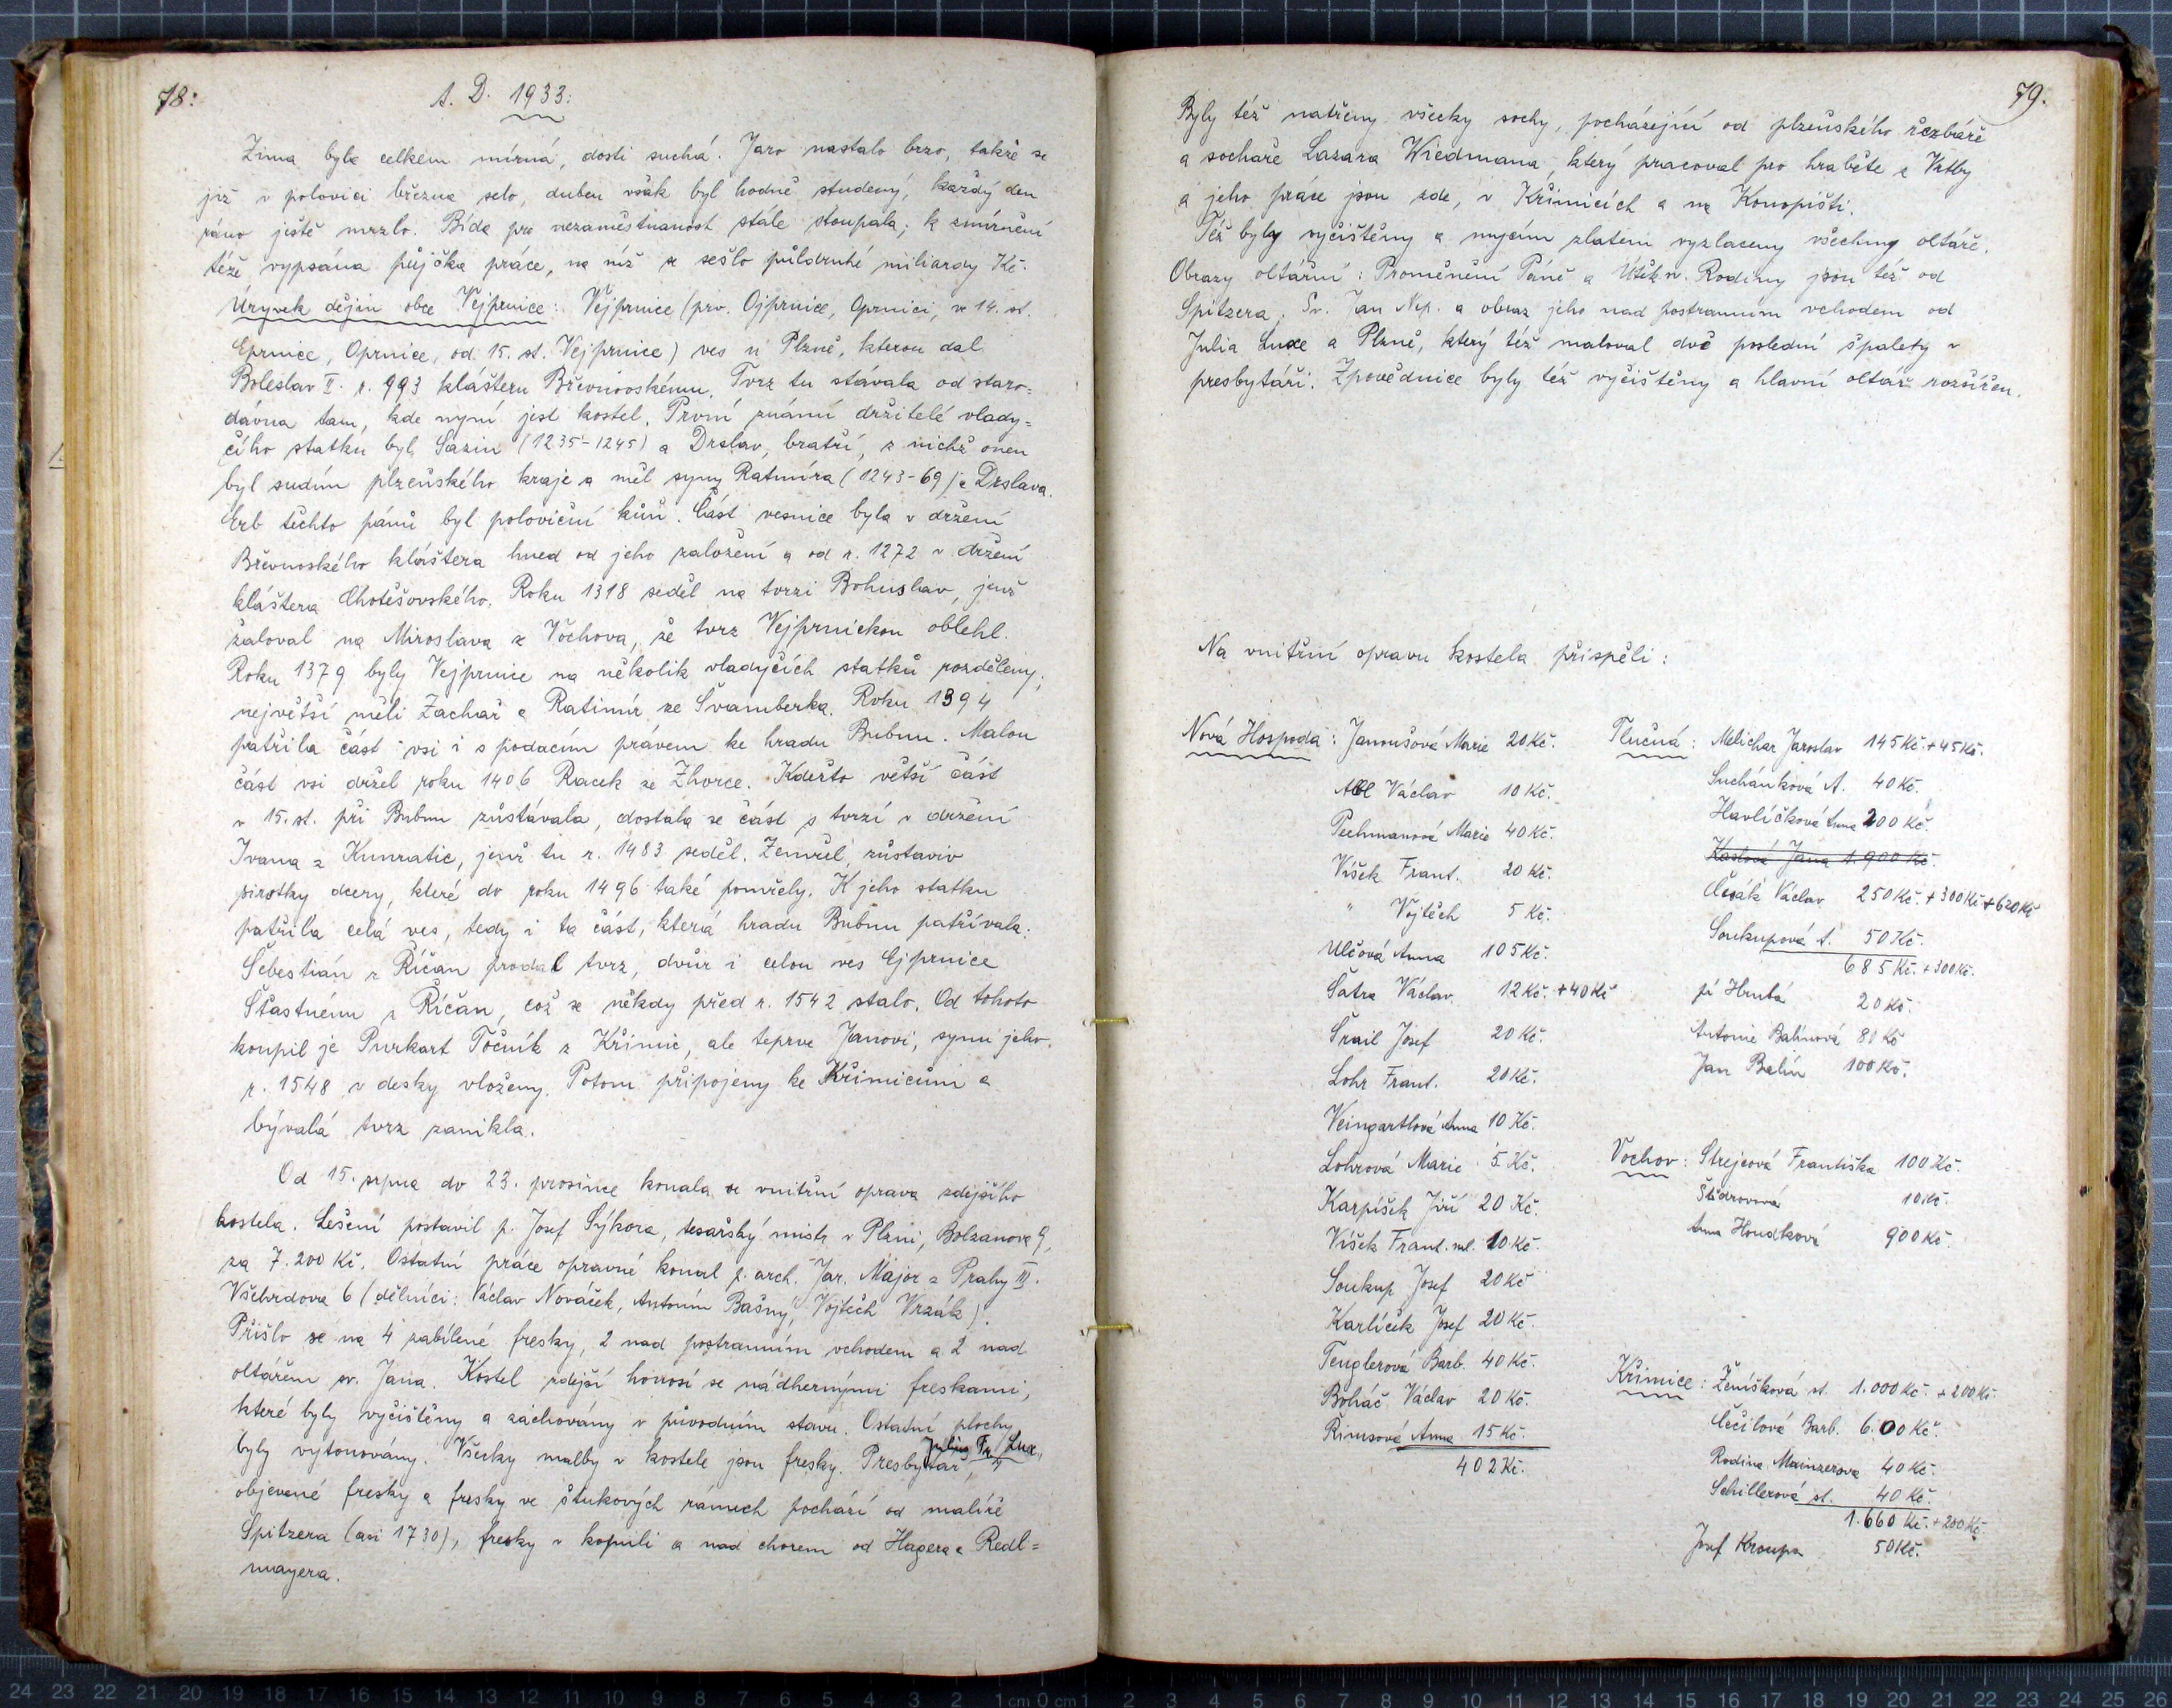 78:
A. D. 1933:
Zima byla celkem mírná, dosti suchá. Jaro nastalo brzo, takže se
již v polovici března selo, duben však byl hodně studený, každý den
ráno ještě mrzlo. Bída pro nezaměstnanost stále stoupala; k zmírnění
téže vypsána půjčka práce, na níž se sešlo půldruhé miliardy Kč.
Úryvek dějin obce Vejprnice: Vejprnice (prv. Ojprnice, Oprnici, ve 14. st.
Eprnice, Oprnice, od 15. st. Vejprnice) ves u Plzně, kterou dal
Boleslav II. r. 993 klášteru Břevnovskému. Tvrz tu stávala od staro=
dávna tam, kde nyní jest kostel. První známí držitelé vlady=
čího statku byl Sazin (1235-1245) a Drslav, bratří, z nichž onen
byl sudím plzeňského kraje a měl syny Ratmíra (1243-69) a Drslava.
Erb těchto pánů byl poloviční kůň. Část vesnice byla v držení
Břevnoského kláštera hned od jeho založení a od r. 1272 v držení
kláštera Chotěšovského. Roku 1318 seděl na tvrzi Bohuslav, jenž
žaloval na Miroslava z Vochova, že tvrz Vejprnickou oblehl.
Roku 1379 byly Vejprnice na několik vladyčích statků rozděleny;
největší měli Zachař a Ratimír ze Švamberka. Roku 1394
patřila část vsi i s podacím právem ke hradu Bubnu. Malou
část vsi držel roku 1406 Racek ze Zhorce. Kdežto větší část
v 15. st. při Bubnu zůstávala, dostala se část s tvrzí v držení
Ivana z Kunratic, jenž tu r. 1483 seděl. Zemřel, zůstaviv
sirotky dcery, které do roku 1496 také pomřely. K jeho statku
patřila celá ves, tedy i ta část, která hradu Bubnu patřívala.
Šebestián z Říčan prodal tvrz, dvůr i celou ves Ejprnice
Šťastnému z Říčan, což se někdy před r. 1542 stalo. Od tohoto
koupil je Purkart Točník z Křimic, ale teprve Janovi, synu jeho.
r. 1548 v desky vloženy. Potom připojeny ke Křimicům a
bývalá tvrz zanikla.
Od 15. srpna do 23. prosince konala se vnitřní oprava zdejšího
kostela. Lešení postavil p. Josef Sýkora, tesařský mistr v Plzni, Bolzanova 9,
za 7.200 Kč. Ostatní práce opravné konal p. arch. Jar. Major z Prahy III.
Všehrdova 6 (dělníci: Václav Nováček, Antonín Bašný, Vojtěch Vrzák).
Přišlo se na 4 zabílené fresky, 2 nad postranním vchodem a 2 nad
oltářem sv. Jana. Kostel zdejší honosí se nádhernými freskami,
které byly vyčištěny a zachovány v původním stavu. Ostatní plochy
byly vytonovány. Všecky malby v kostele jsou fresky. Presbytář, 4
Julius Fr. Lux,
objevené fresky a fresky ve štukových rámech pochází od malíře
Spitzera (asi 1730), fresky v kopuli a nad chorem od Hagera a Redl=
mayera.
79.
Byly též natřeny všecky sochy, pocházející od plzeňského řezbáře
a sochaře Lazara Wiedmana, který pracoval pro hraběte z Vrtby
a jeho práce jsou zde, v Křimicích a na Konopišti.
Též byly vyčištěny a mycím zlatem vyzlaceny všechny oltáře.
Obrazy oltářní: Proměnění Páně a Útěk sv. Rodiny jsou též od
Spitzera. Sv. Jan Nep. a obraz jeho nad postranním vchodem od
Julia Luxe a Plzně, který též maloval dvě poslední špalety v
presbytáři. Zpovědnice byly též vyčištěny a hlavní oltář rozšířen.
Na vnitřní opravu kostela přispěli:
Nová Hospoda: Janoušová Marie 20 Kč.
Abl Václav 10 Kč.
Pechmanová Marie 40 Kč.
Víšek Frant. 20 Kč.
" Vojtěch 5 Kč.
Ulčová Anna 105 Kč.
Šatra Václav 12 Kč. + 40 Kč
Šrail Josef 20 Kč.
Lohr Frant. 20 Kč.
Veingartlová Anna 10 Kč.
Lohrová Marie 5 Kč.
Karpíšek Jiří 20 Kč.
Víšek Frant. ml. 10 Kč.
Soukup Josef 20 Kč
Karlíček Josef 20 Kč.
Tenglerová Barb. 40 Kč.
Boháč Václav 20 Kč.
Řimsová Anna 15 Kč.
402 Kč.
Tlučná: Melichar Jaroslav 145 Kč. + 45 Kč.
Suchánková A. 40 Kč.
Havlíčková Anna 200 Kč.
Kaslová Jana 1.900 Kč.
Čeřák Václav 250 Kč. + 300 Kč + 620 Kč
Soukupová A. 50 Kč.
685 Kč. + 300 Kč.
pí Hrubá 20 Kč.
Antonie Balínová 80 Kč
Jan Balín 100 Kč.
Vochov: Strejcová Františka 100 Kč.
10 Kč.
Anna Houdková 900 Kč.
Křimice: Ženíšková st. 1.000 Kč. + 200 Kč.
Čečilová Barb. 600 Kč.
Rodina Mainzerova 40 Kč.
Schillerová st. 40 Kč.
1.660 Kč. + 200 Kč.
Josef Kroupa 50 Kč.
24 23 22 21 20 19 18 17 16 15 14 13 12 11 10 9 8 7 6 5 4 3 2 1 cm 0 cm 1 2 3 4 5 6 7 8 9 10 11 12 13 14 15 16 17 18 19 20 21 22 23 24 25 26